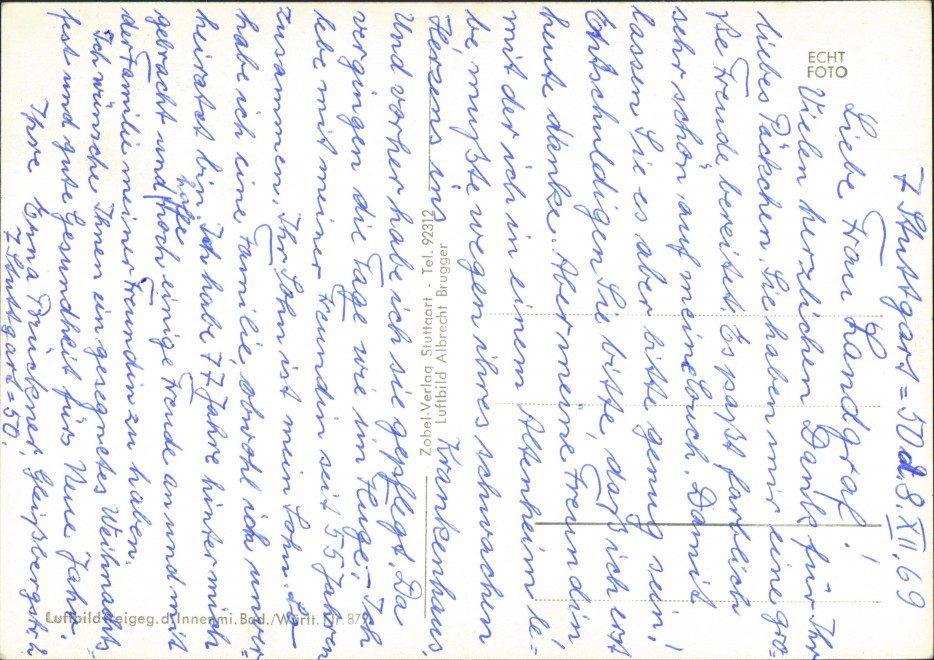 7 Stuttgart=50 d. 8. XII. 69
Liebe Frau Landgraf!
Vielen herzlichen Dank für Ihr
liebes Päckchen. Sie haben mir eine gro=
ße Freude bereitet. Es paßt farblich
sehr schön auf meine Couch. Damit
lassen Sie es aber bitte genug sein,
Entschuldigen Sie bitte, daß ich erst
heute danke. Aber meine Freundin
mit der ich in einem Altenheim le=
be mußte wegen ihres schwachen
Herzens ins Krankenhaus,
Und vorher habe ich sie gepflegt. Da
vergingen die Tage wie im Fluge. Ich
lebe mit meiner Freundin seit 55 Jahren
zusammen. Ihr Sohn ist mein Sohn. So
habe ich eine Familie, obwohl ich unver=
heiratet bin. Ich habe 77 Jahre hinter mich
gebracht und hoffe noch einige Freude an und mit
der Familie meiner Freundin zu haben.
Ich wünsche Ihnen ein gesegnetes Weihnachts=
fest und gute Gesundheit fürs Neue Jahr.
Ihre Erna Brückner, Gleißbergstr. 2
7 Stuttgart=50.
ECHT
FOTO
Zobel-Verlag Stuttgart - Tel. 92312
Luftbild Albrecht Brugger
Luftbild freigeg. d. Innenmi. Bad./Württ. Nr.